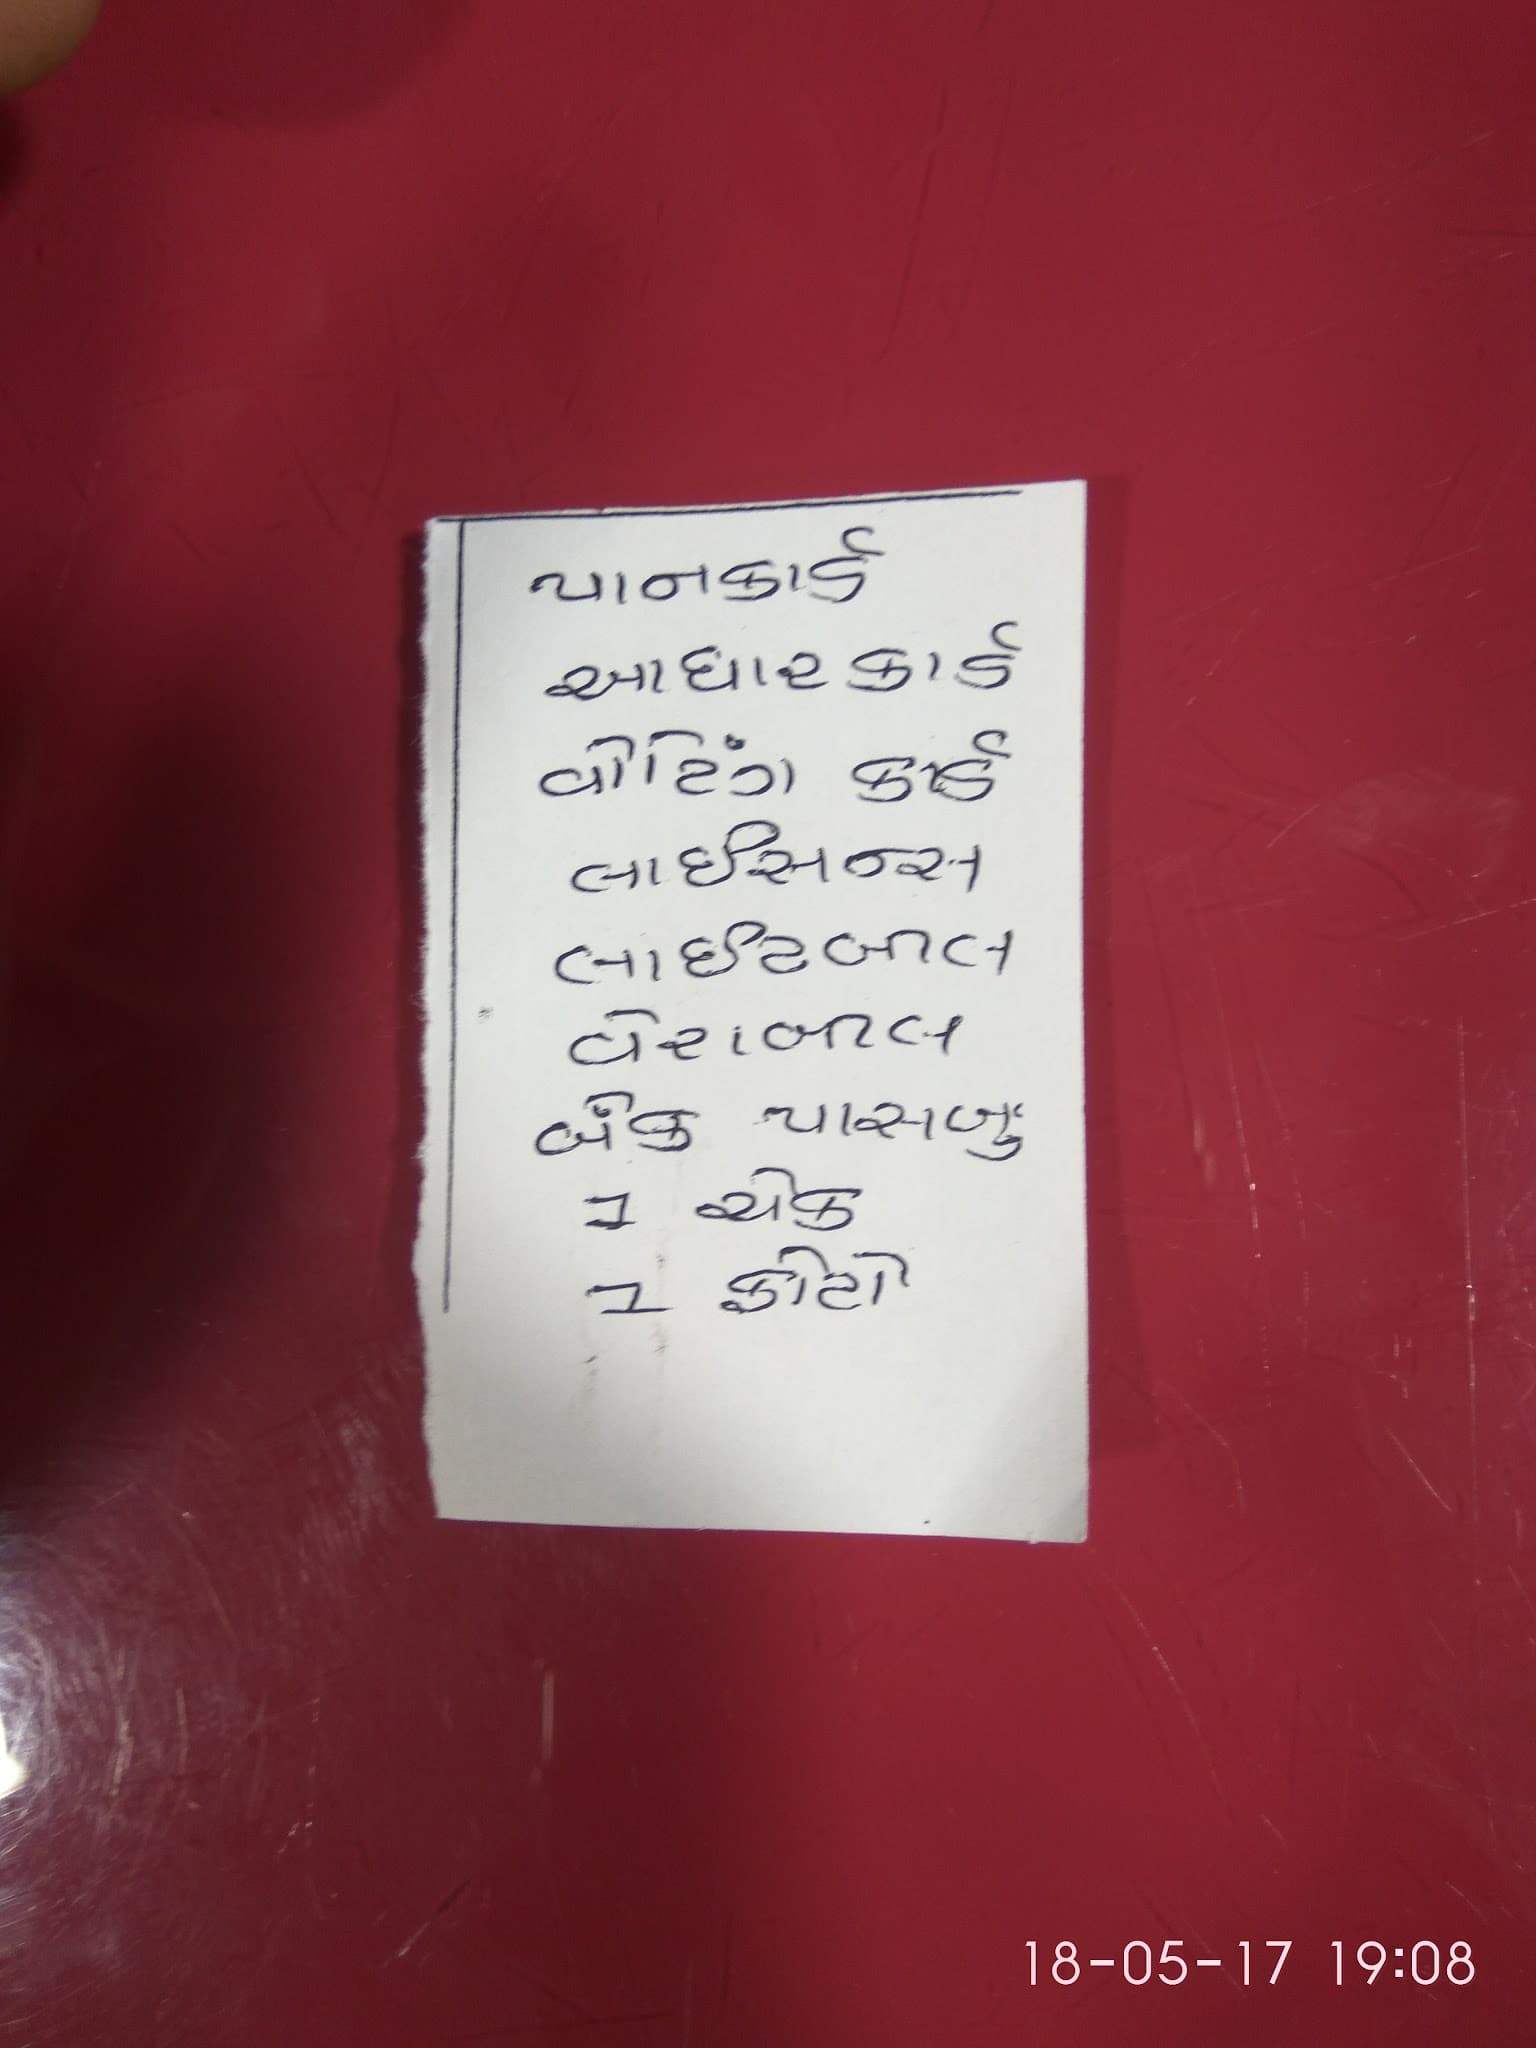 પાનકાર્ડ
આધારકાર્ડ
વોટિંગ કાર્ડ
લાઈસન્સ
લાઈટબીલ
વેરાબીલ
બેંક પાસબુ
1 ચેક
1 ફોટો
18-05-17 19:08